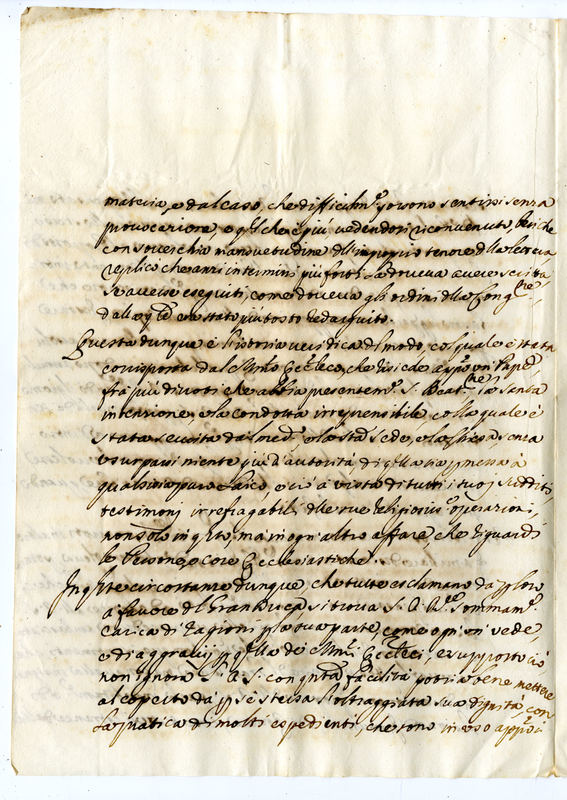 materia, e dal caso, che difficilm.te possono sentirsi senza
provocazione, e q.l che è più vedendosi riconvenuto, benche
con soverchia mansuetudine dell'improprio tenore della lettera
replicò che anzi in termini più forti doveva avere scritta
se avesse eseguiti, come doveva gli ordini della Cong.ne
dalla q.le era stato più tosto redarguito.
Questa dunque è l'istoria veridica del modo, col quale è stata
corrisposta dal Min.ro Eccl.co, che risiede appo un Papa
più divoti che abbia presentem.te S. Beat.ne la santa
intenzione, e la condotta irreprensibile colla quale è
stata servita dal med.o la S.ta Sede, e la Chiesa senza
usurparsi niente più d'autorità di q.lla sia permessa à
qualsisia puro Laico, e ciò à vista di tutti i suoi sudditi,
testimonj irrefragabili delle sue religiosis.e operazioni,
non solo in q.sto, ma in ogn'altro affare, che riguardi
le Persone, o cose Ecclesiastiche.
In q.ste circostanze dunque, che tutte esclamano da p loro
a favore del Gran Duca si trova S. A. R. sommam.te
carica di ragioni p la sua parte, come ogn'un vede,
e di aggravij p q.lla dei Min.ri Eccl.ci, e supposto ciò
non ignora S. A. S. con q.nta facilità potria bene mettere
al coperto da p sè stessa l'oltraggiata sua dignità, con
la pratica di molti espedienti, che sono in uso appo i